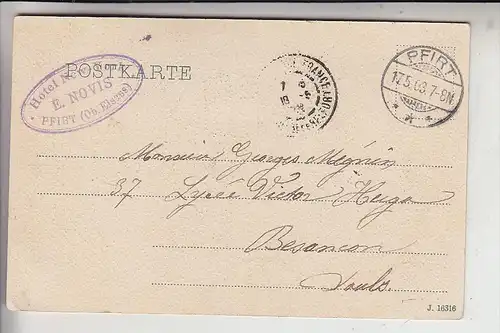 POSTKARTE
Hotel
E. NOVIS
PFIRT (Ob. Elsass)
PFIRT
17.5.03.7-8N
Monsieur Georges Mégnin
37 Lycée Victor Hugo
Besancon
Doubs.
J. 16316